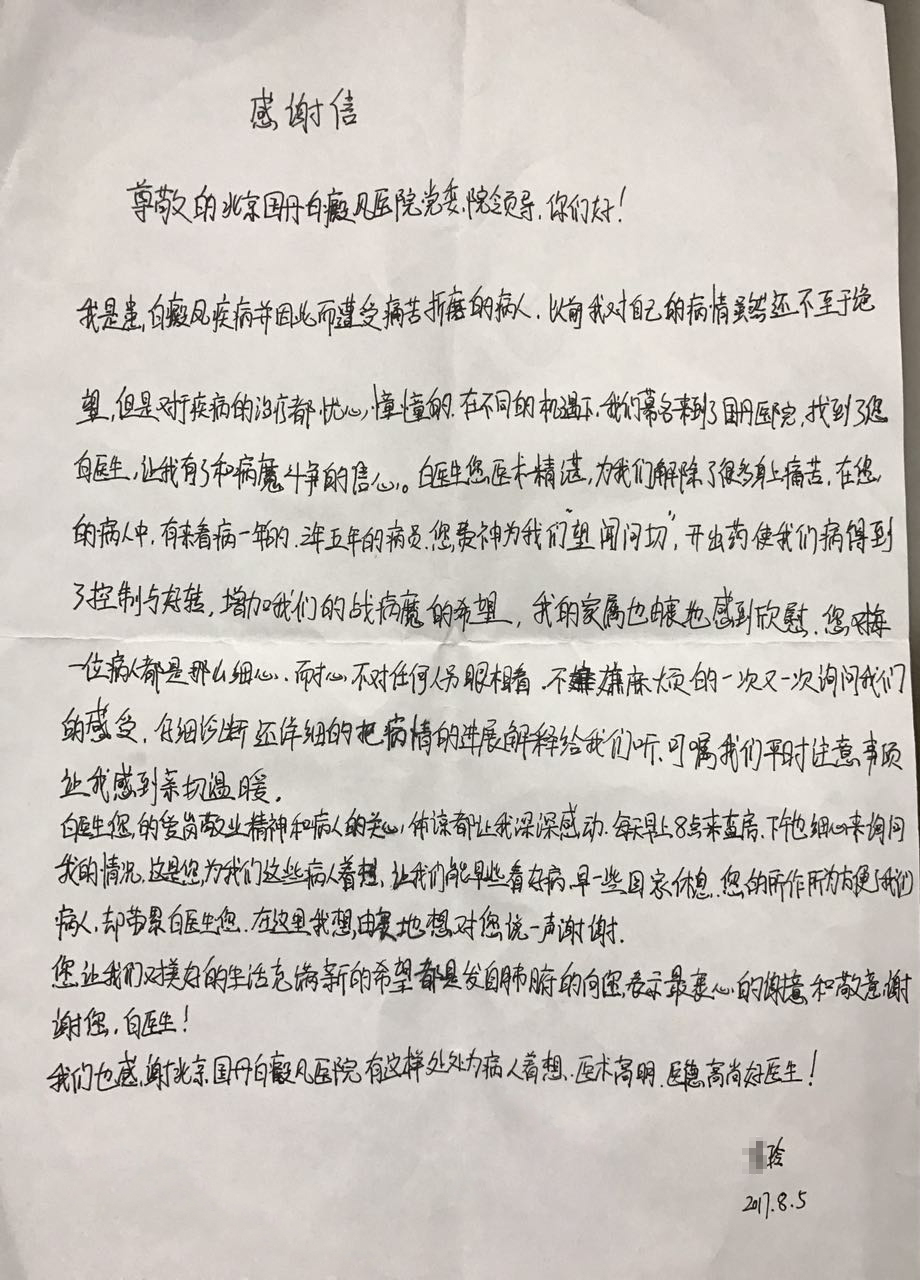 感谢信
尊敬的北京国丹白癜风医院党委、院领导,你们好!
我是患白癜风疾病并因此而遭受痛苦折磨的病人,以前我对自己的病情虽然还不至于绝
望,但是对于疾病的治疗都忧心憧憧的.在不同的机遇下,我们慕名来到了国丹医院,找到了您
白医生,让我有了和病魔斗争的信心。白医生您医术精湛,为我们解除了很多身上痛苦.在您
的病人中,有来看病一年的、三年五年的病员.您费神为我们"望闻问切",开出药使我们病得到
了控制与好转,增加我们的战病魔的希望,我的家属也由衷地感到欣慰.您对每
一位病人都是那么细心、而耐心不对任何人另眼相看.不嫌麻烦的一次又一次询问我们
的感受,仔细诊断还详细的把病情的进展解释给我们听.叮嘱我们平时注意事项
让我感到亲切温暖.
白医生您的爱岗敬业精神和病人的关心,体谅都让我深深感动.每天早上8点来查房.下午也细心来询问
我的情况.这是您为我们这些病人着想,让我们能早些看好病.早一些回家休息.您的所作所为方便了我们
病人,却劳累白医生您.在这里我想由衷地想对您说一声谢谢.
您让我们对美好的生活充满新的希望都是发自肺腑的向您表示最衷心的谢意和敬意,谢
谢您,白医生!
我们也感谢北京国丹白癜风医院有这样处处为病人着想.医术高明.医德高尚好医生!
玲
2017.8.5